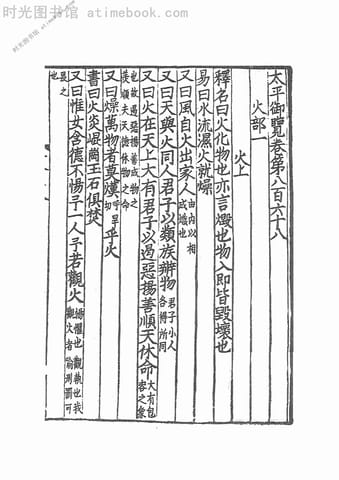 时光图书馆 - atimebook.com
太平御覽卷第八百六十八
火部一
火上
釋名曰火化物也亦言燬也物入即皆毀壞也
易曰水流濕火就燥
又曰風自火出家人由内以相成熾也
又曰天與火同人君子以類族辨物君子小人各得所同
又曰火在天上大有君子以遏惡揚善順天休命大有包容之象
也故遏惡揚善成物之
美順夫天德休物之命
又曰燥萬物者莫熯乎火
書曰火炎崑崗玉石俱焚
又曰惟女含德不惕予一人予若觀火惕懼也我觀火者
也
时光图书馆 - atimebook.com